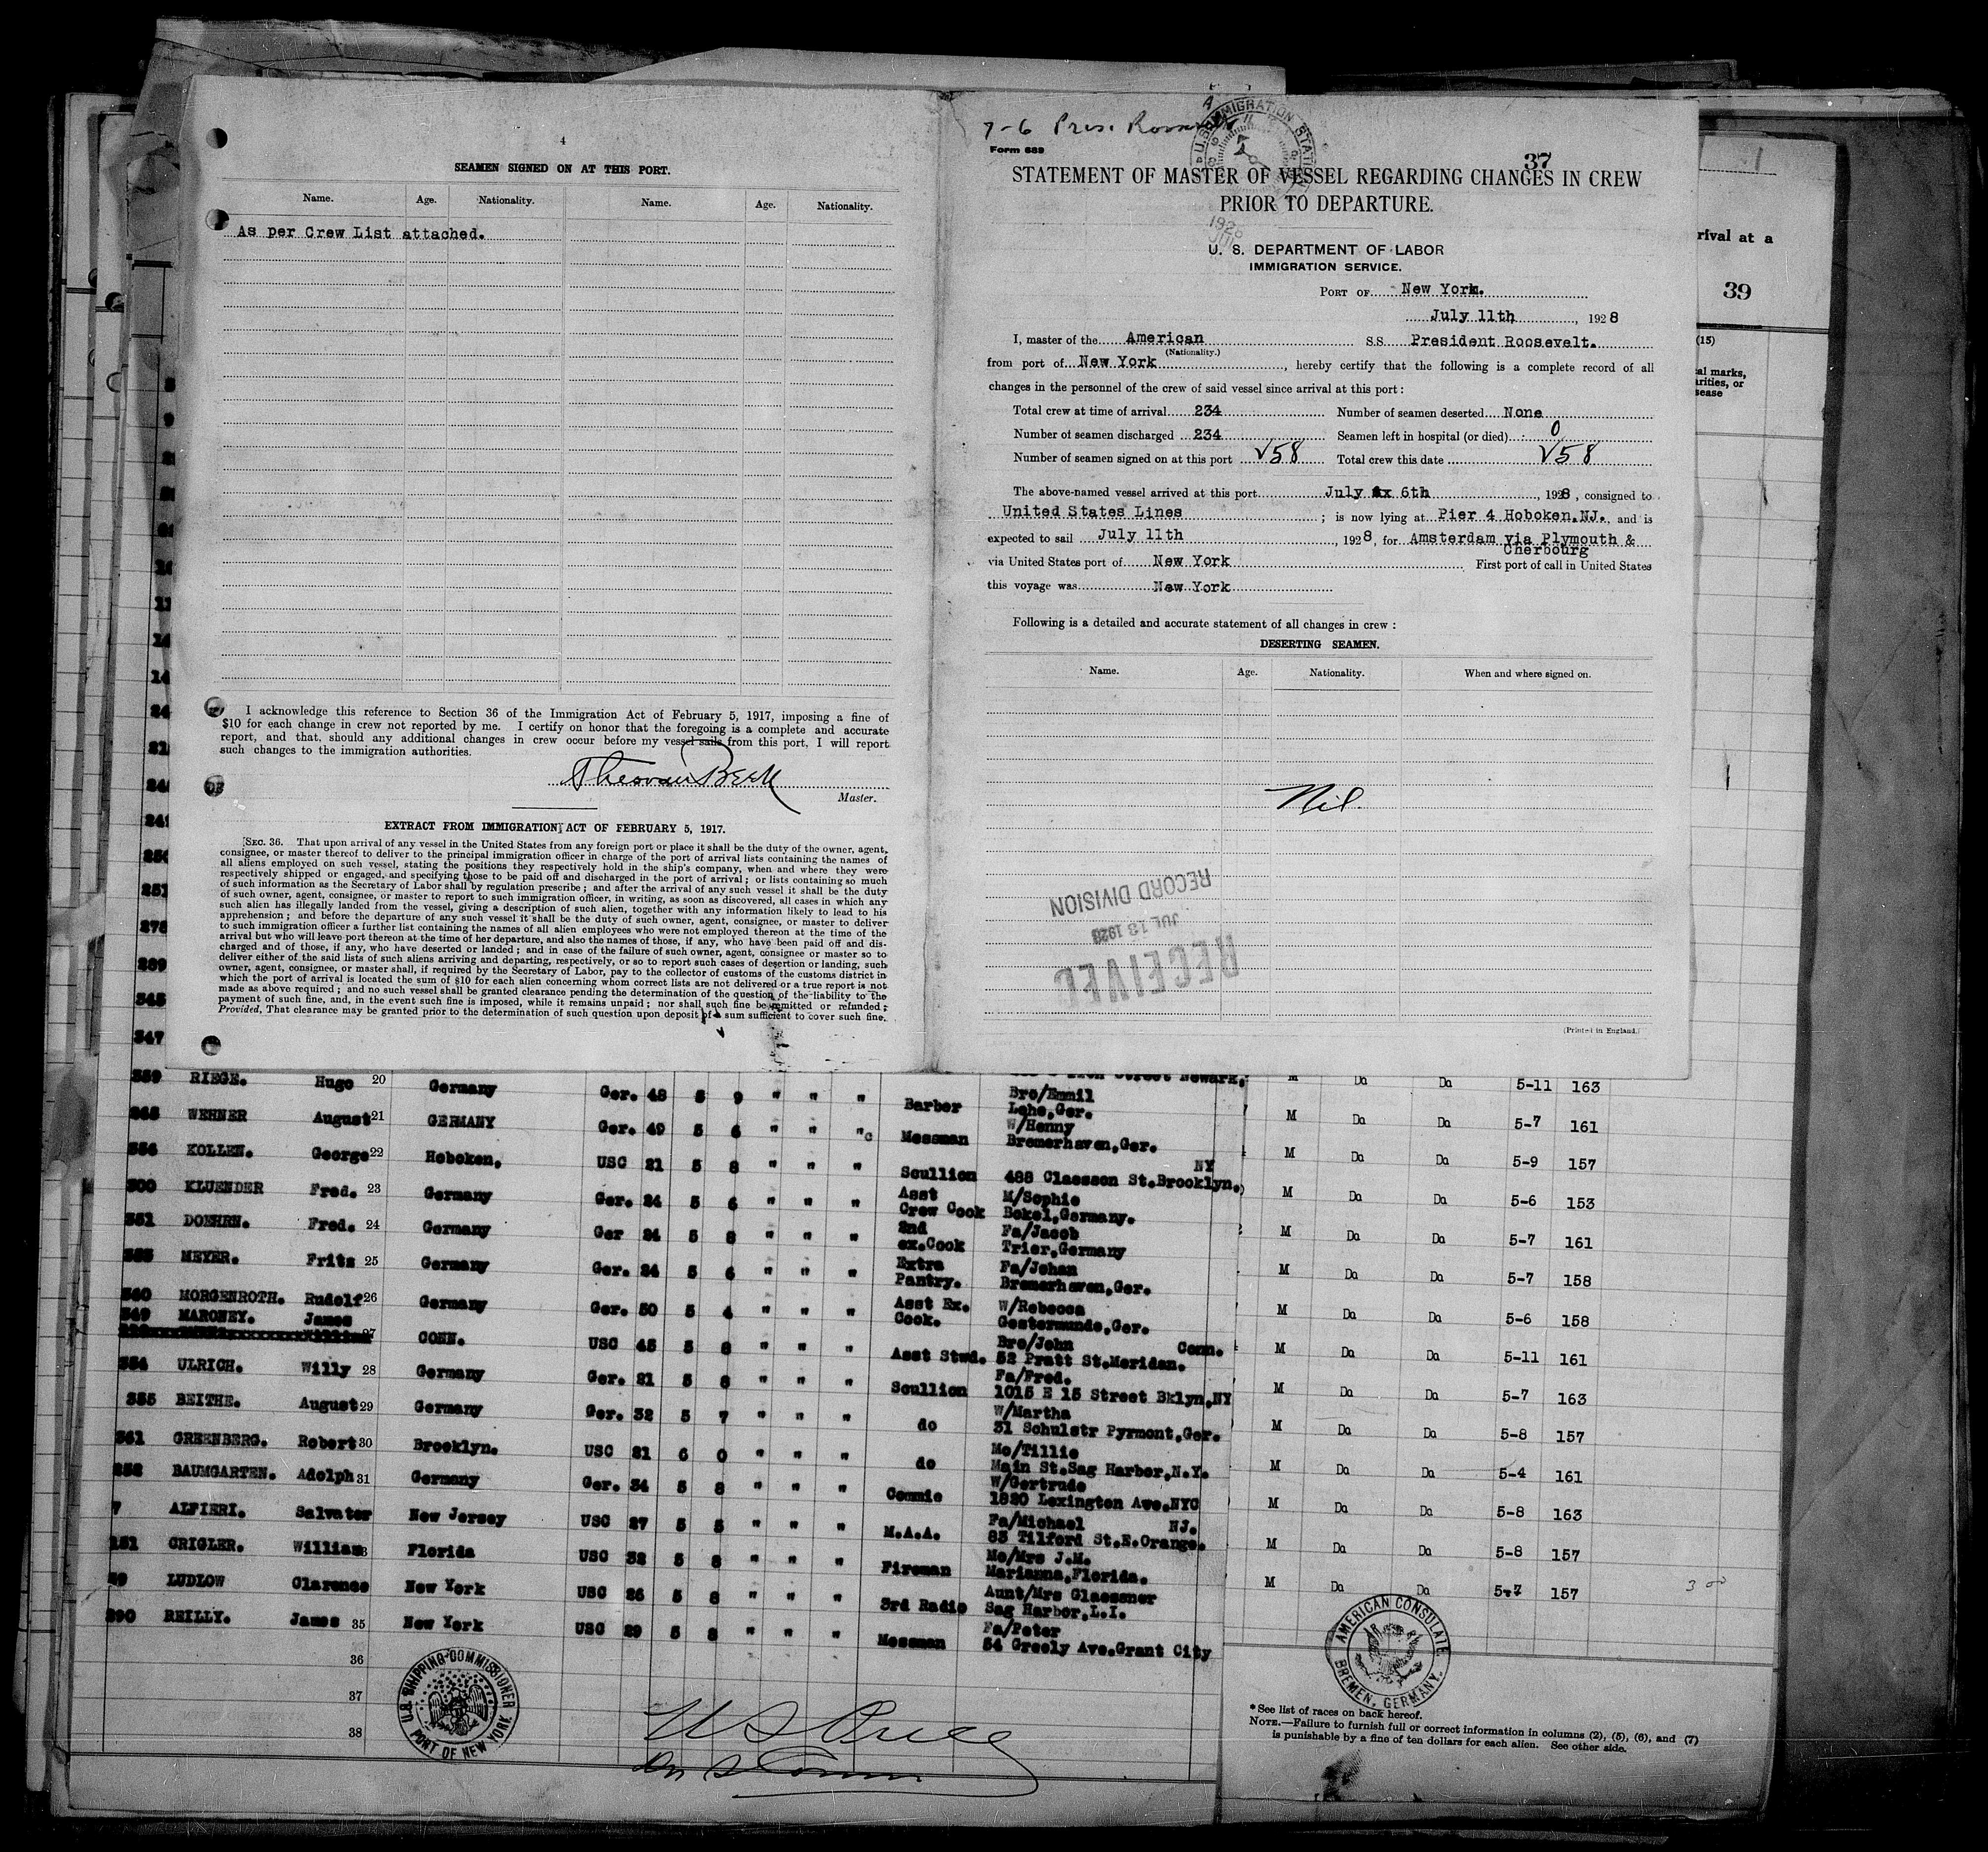 4
SEAMEN SIGNED ON AT THIS PORT.
Name. Age. Nationality. Name. Age. Nationality.
As per Crew List attached.
I acknowledge this reference to Section 36 of the Immigration Act of February 5, 1917, imposing a fine of
$10 for each change in crew not reported by me. I certify on honor that the foregoing is a complete and accurate
report, and that, should any additional changes in crew occur before my vessel sails from this port, I will report
such changes to the immigration authorities.
Master.
EXTRACT FROM IMMIGRATION ACT OF FEBRUARY 5, 1917.
SEC. 36. That upon arrival of any vessel in the United States from any foreign port or place it shall be the duty of the owner, agent,
consignee, or master thereof to deliver to the principal immigration officer in charge of the port of arrival lists containing the names of
all aliens employed on such vessel, stating the positions they respectively hold in the ship's company, when and where they were
respectively shipped or engaged, and specifying those to be paid off and discharged in the port of arrival; or lists containing so much
of such information as the Secretary of Labor shall by regulation prescribe; and after the arrival of any such vessel it shall be the duty
of such owner, agent, consignee, or master to report to such immigration officer, in writing, as soon as discovered, all cases in which any
such alien has illegally landed from the vessel, giving a description of such alien, together with any information likely to lead to his
apprehension; and before the departure of any such vessel it shall be the duty of such owner, agent, consignee, or master to deliver
to such immigration officer a further list containing the names of all alien employees who were not employed thereon at the time of the
arrival but who will leave port thereon at the time of her departure, and also the names of those, if any, who have been paid off and dis-
charged and of those, if any, who have deserted or landed; and in case of the failure of such owner, agent, consignee or master so to
deliver either of the said lists of such aliens arriving and departing, respectively, or so to report such cases of desertion or landing, such
owner, agent, consignee, or master shall, if required by the Secretary of Labor, pay to the collector of customs of the customs district in
which the port of arrival is located the sum of $10 for each alien concerning whom correct lists are not delivered or a true report is not
made as above required; and no such vessel shall be granted clearance pending the determination of the question of the liability to the
payment of such fine, and, in the event such fine is imposed, while it remains unpaid; nor shall such fine be remitted or refunded:
Provided, That clearance may be granted prior to the determination of such question upon deposit of a sum sufficient to cover such fine.
7-6 Pres. Roosevelt
Form 689
U.S. IMMIGRATION STATION
37
STATEMENT OF MASTER OF VESSEL REGARDING CHANGES IN CREW
PRIOR TO DEPARTURE.
U. S. DEPARTMENT OF LABOR
IMMIGRATION SERVICE.
PORT OF New York.
July 11th, 1928
I, master of the American S.S. President Roosevelt.
(Nationality.)
from port of New York, hereby certify that the following is a complete record of all
changes in the personnel of the crew of said vessel since arrival at this port:
Total crew at time of arrival 234 Number of seamen deserted None
Number of seamen discharged 234 Seamen left in hospital (or died) 0
Number of seamen signed on at this port 258 Total crew this date 258
The above-named vessel arrived at this port July 6th, 1928, consigned to
United States Lines; is now lying at Pier 4 Hoboken.NJ., and is
expected to sail July 11th, 1928, for Amsterdam via Plymouth &
Cherbourg
via United States port of New York First port of call in United States
this voyage was New York
Following is a detailed and accurate statement of all changes in crew:
DESERTING SEAMEN.
Name. Age. Nationality. When and where signed on.
Nil.
RECORD DIVISION
JUL 13 1928
RECEIVED
(Printed in England.)
rival at a
39
(15)
al marks,
arities, or
sease
347
359 RIEGE. Hugo 20 Germany Ger. 48 5 9 " " " Barber Bro/Emmil Lehe,Ger. M Do Do 5-11 163
268 WEHNER August 21 GERMANY Ger. 49 5 6 " " " Messman W/Henny Bremerhaven,Ger. M Do Do 5-7 161
356 KOLLEN. George 22 Hoboken. USC 21 5 8 " " " Scullion 488 Claesson St.Brooklyn. NY M Do Do 5-9 157
300 KLUENDER Fred. 23 Germany Ger. 24 5 6 " " " Asst Crew Cook M/Sophie Bokel,Germany. M Do Do 5-6 153
351 DOEHRN. Fred. 24 Germany Ger 24 5 8 " " " 2nd ex.Cook Fa/Jacob Trier,Germany M Do Do 5-7 161
353 MEYER. Fritz 25 Germany Ger. 24 5 6 " " " Extra Pantry. Fa/Johan Bremerhaven,Ger. M Do Do 5-7 158
340 MORGENROTH. Rudolf 26 Germany Ger. 50 5 4 " " " Asst Ex. Cook. W/Rebecca Gestermunde,Ger. M Do Do 5-6 158
349 MARONEY. James 27 CONN. USC 45 5 8 " " " Asst Stwd. Bro/John 52 Pratt St.Meriden. Conn. M Do Do 5-11 161
354 ULRICH. Willy 28 Germany Ger. 21 5 8 " " " Scullion Fa/Fred. 1015 E 15 Street Bklyn,NY M Do Do 5-7 163
355 BEITHE. August 29 Germany Ger. 32 5 7 " " " do W/Martha 31 Schulstr Pyrmont,Ger. M Do Do 5-8 157
361 GREENBERG. Robert 30 Brooklyn. USC 21 6 0 " " " do Mo/Tillie Main St.Sag Harbor,N.Y. M Do Do 5-4 161
252 BAUMGARTEN. Adolph 31 Germany Ger. 34 5 8 " " " Commie W/Gertrude 1820 Lexington Ave.NYC M Do Do 5-8 163
7 ALFIERI. Salvator New Jersey USC 27 5 5 " " " M.A.A. Fa/Michael NJ. 83 Tilford St.E.Orange. M Do Do 5-8 157
151 CRIGLER. William Florida USC 32 5 8 " " " Fireman Mo/Mrs J.M. Marianna,Florida. M Do Do 5-7 157
29 LUDLOW Clarence New York USC 26 5 8 " " " 3rd Radio Aunt/Mrs Glaessner Sag Harbor,L.I.
290 REILLY. James 35 New York USC 29 5 8 " " " Messman Fa/Peter 54 Greely Ave.Grant City
36
37
38
U.S. SHIPPING COMMISSIONER
PORT OF NEW YORK.
AMERICAN CONSULATE
BREMEN, GERMANY.
3 00
* See list of races on back hereof.
NOTE.—Failure to furnish full or correct information in columns (2), (5), (6), and (7)
is punishable by a fine of ten dollars for each alien. See other side.